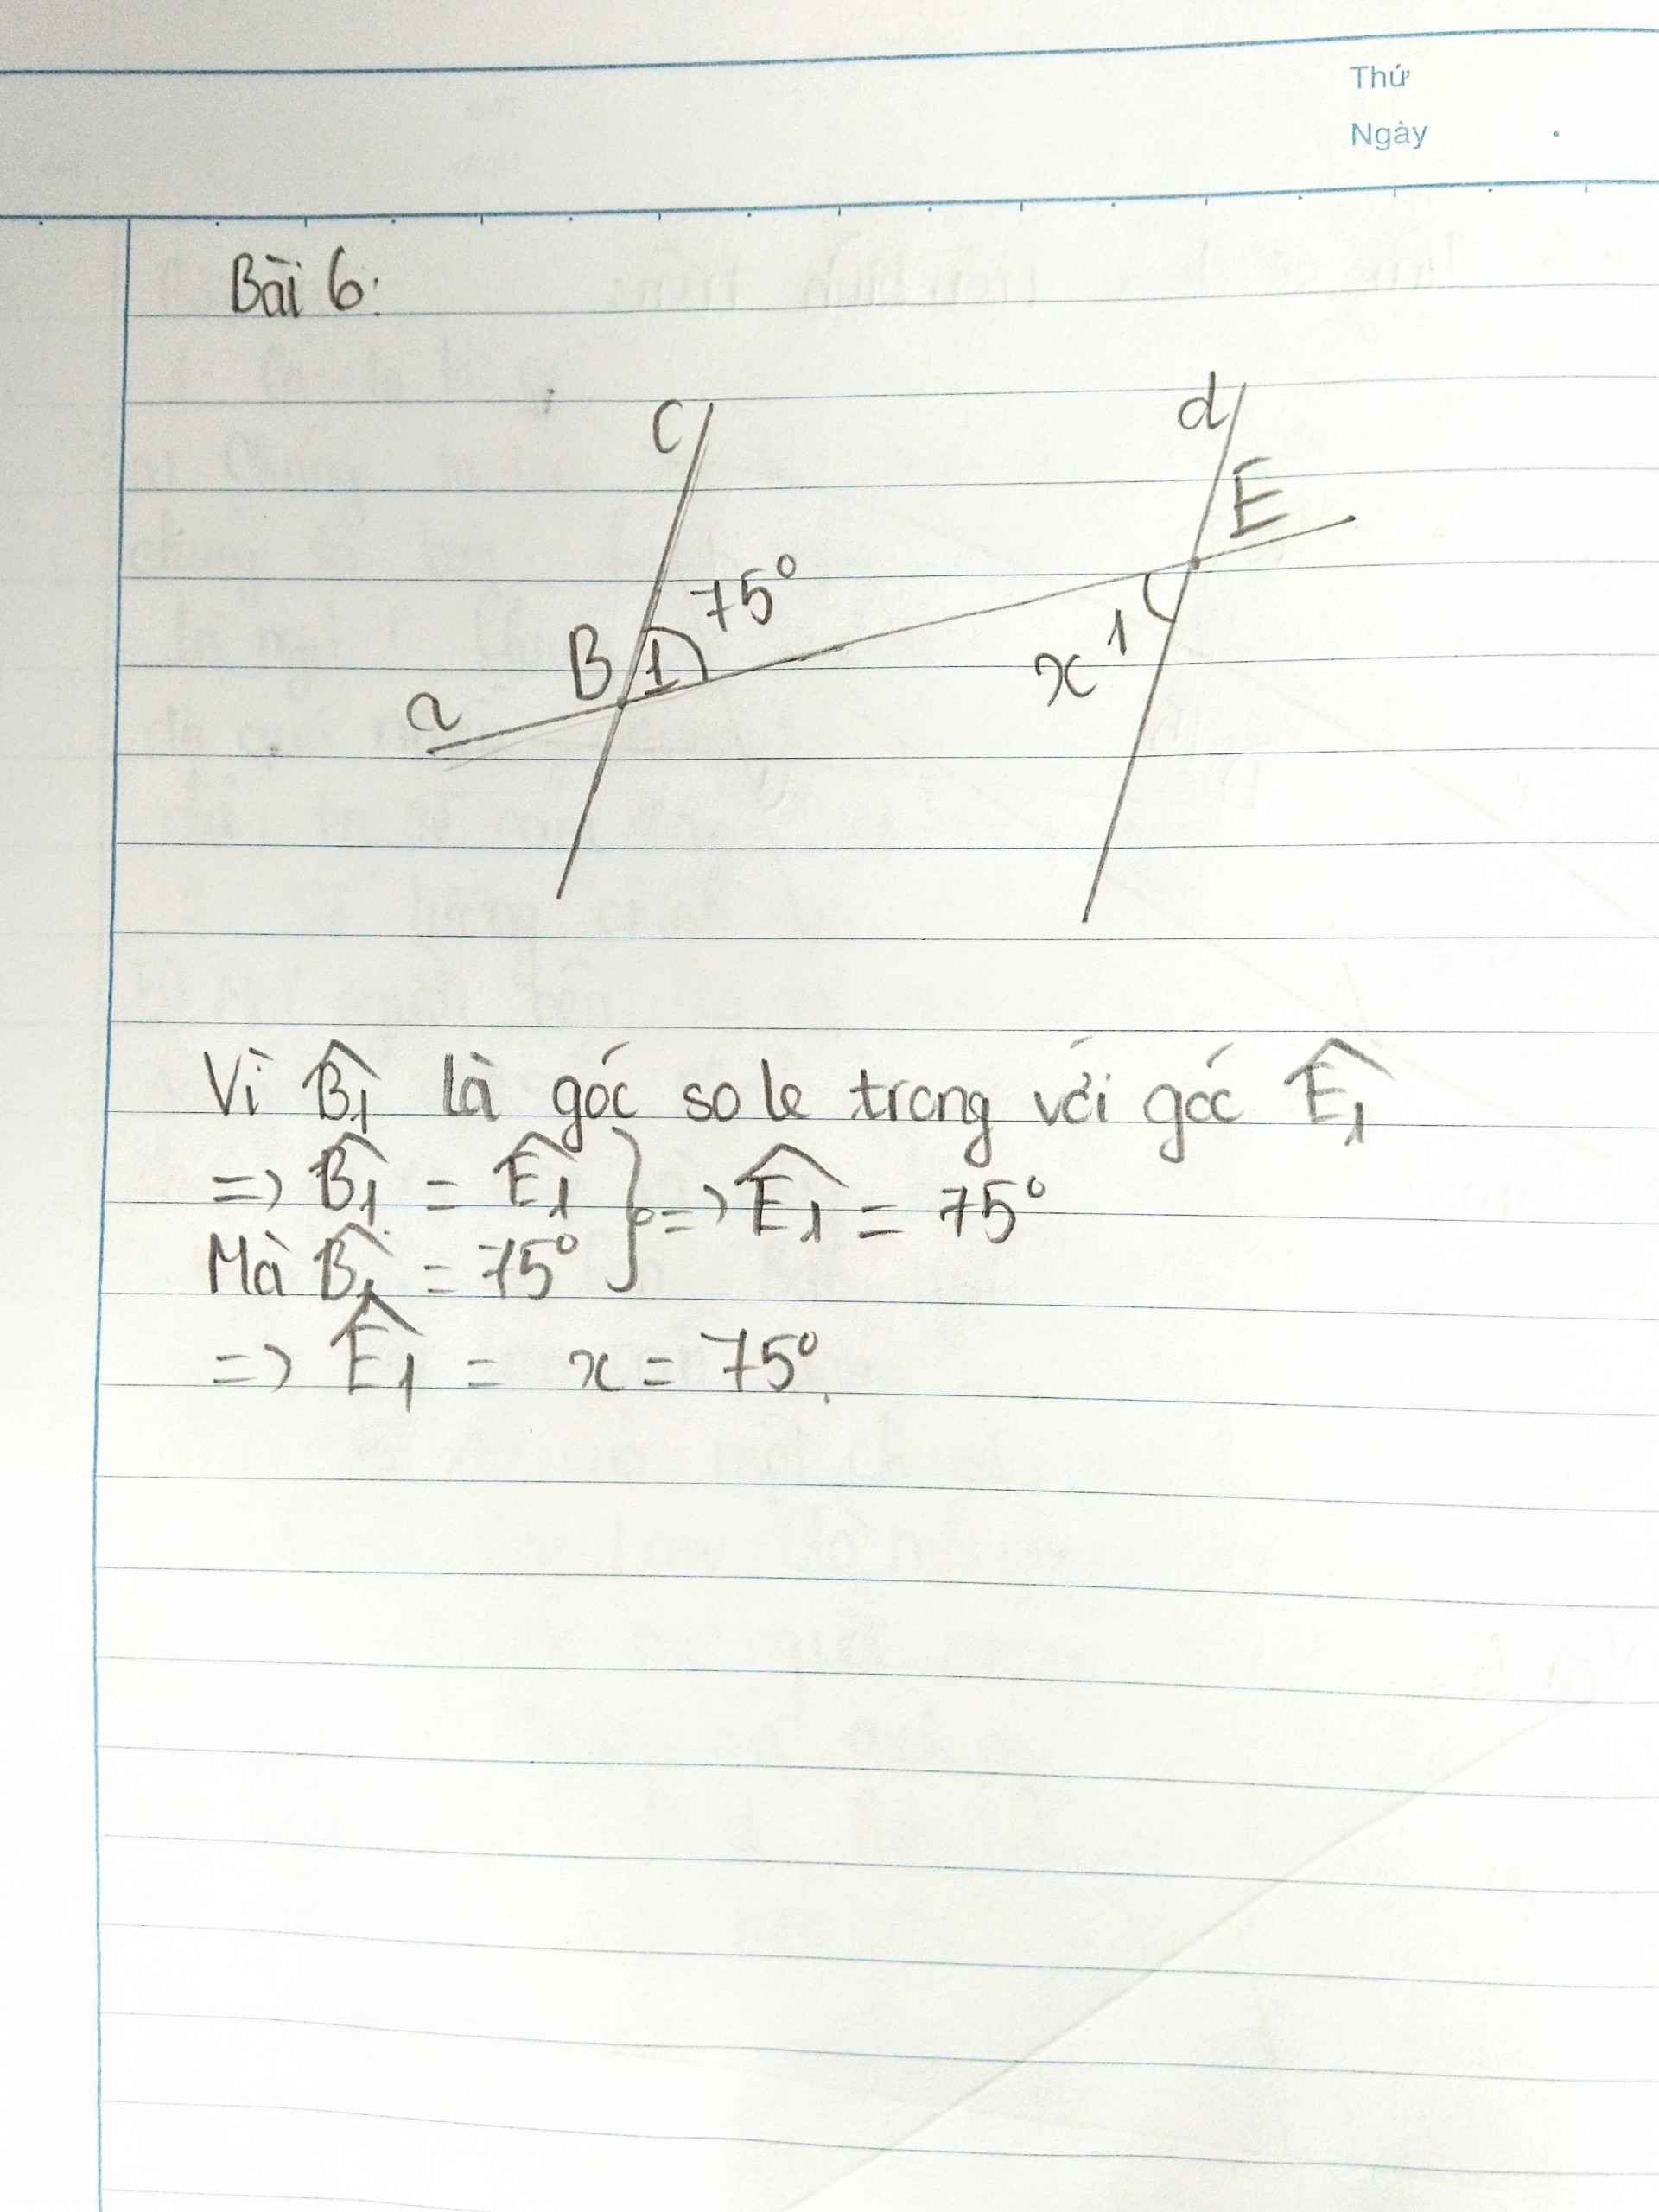 Thứ
Ngày
Bài 6:
c
d
E
75°
B 1
1
x
a
Vì B̂₁ là góc so le trong với góc Ê₁
=> B̂₁ = Ê₁ } => Ê₁ = 75°
Mà B̂₁ = 75°
=> Ê₁ = x = 75°.